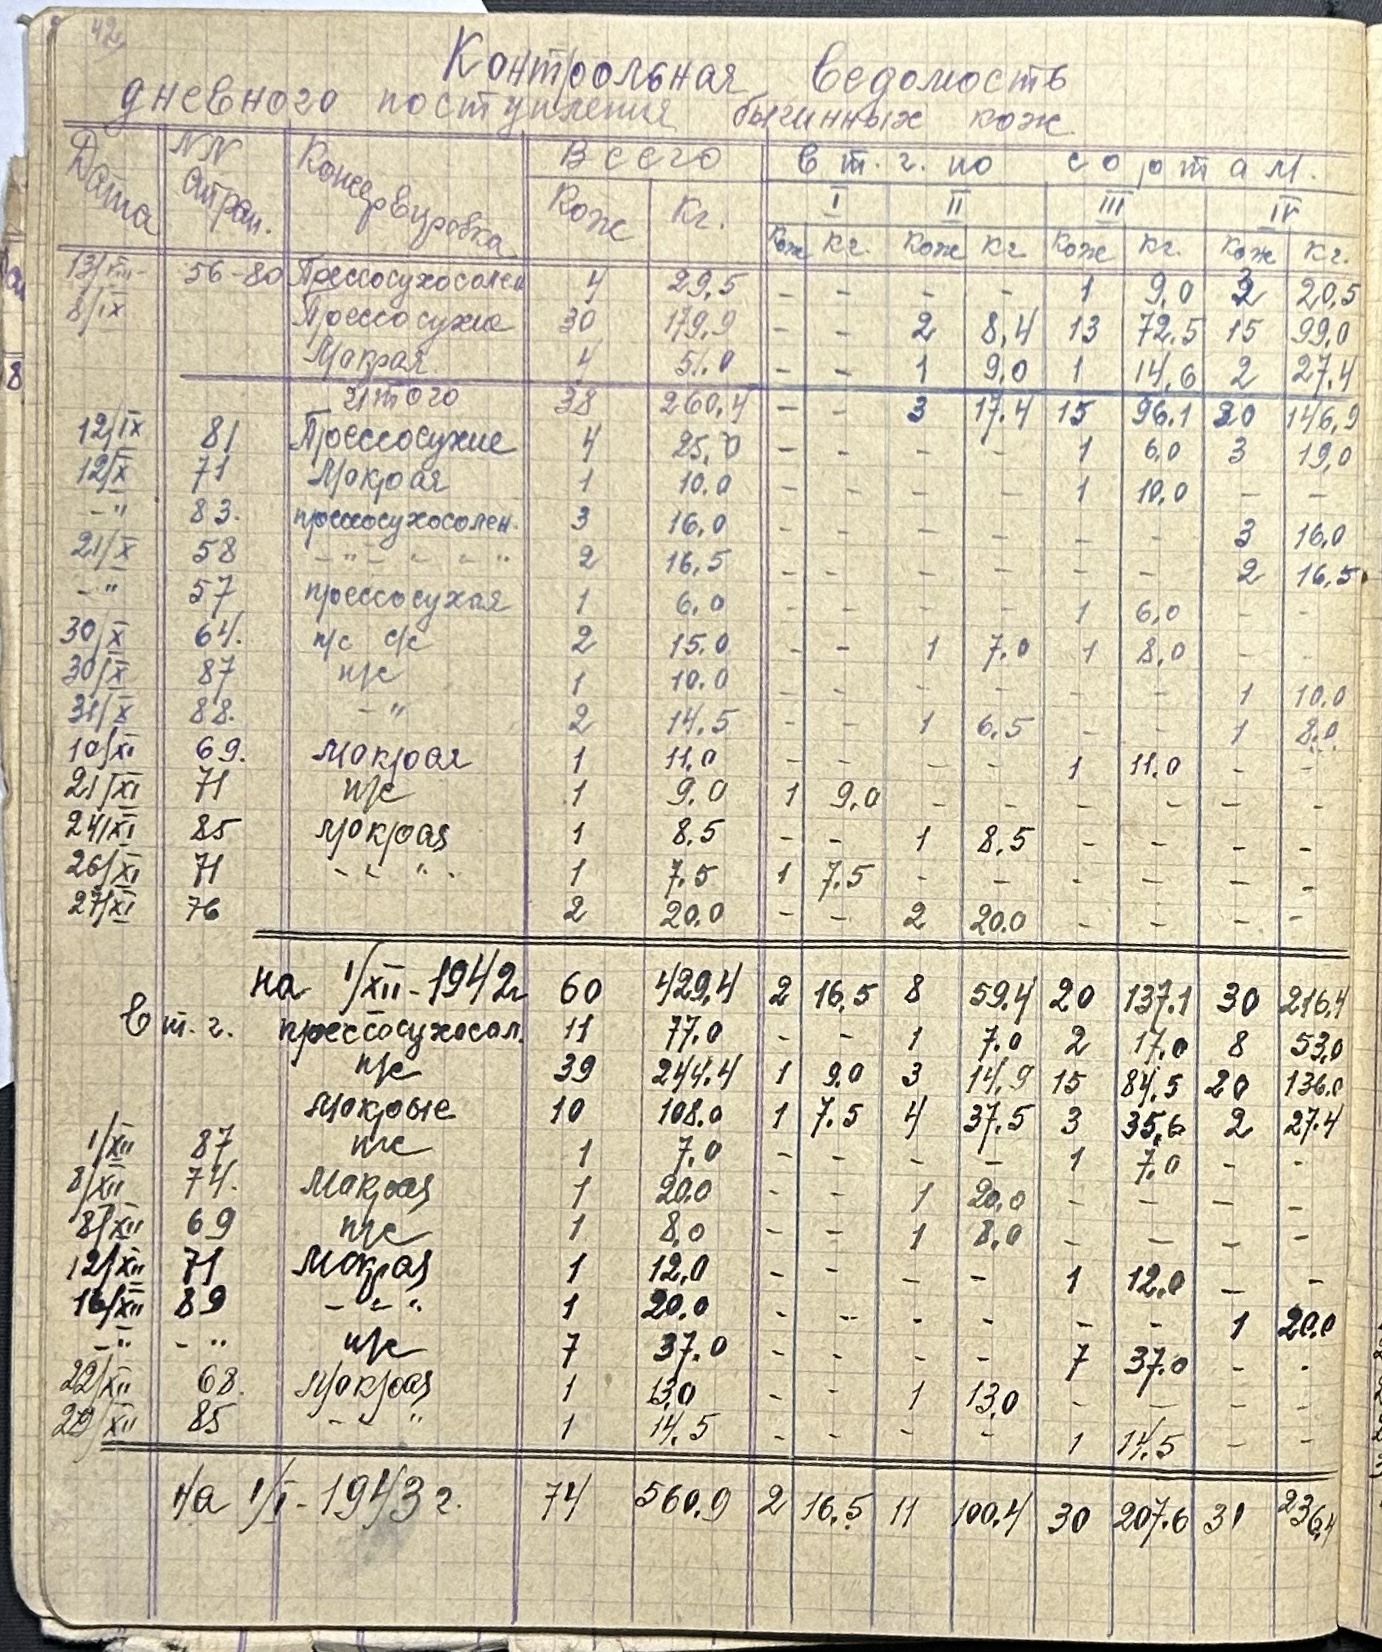 42
Контрольная ведомость
дневного поступления бычинных кож
Дата NN стран. Консервировка Всего в т. г. по сортам.
Кож Кг. I II III IV
Кож Кг. Кож Кг Кож Кг. Кож Кг.
13/VIII- 56-80 Прессосухосолен 4 29,5 - - - - 1 9,0 3 20,5
8/IX Прессосухие 30 179,9 - - 2 8,4 13 72.5 15 99,0
Мокрая. 4 51.0 - - 1 9,0 1 14,6 2 27.4
Итого 38 260,4 - - 3 17.4 15 96.1 20 146,9
12/IX 81 Прессосухие 4 25,0 - - - - 1 6,0 3 19,0
12/X 71 Мокрая 1 10.0 - - - - 1 10,0 - -
-" 83. прессосухосолен. 3 16,0 - - - - - - 3 16,0
21/X 58 - " - - - " 2 16,5 - - - - - - 2 16,5
-" 57 прессосухая 1 6,0 - - - - 1 6,0 - -
30/X 64. п/с с/с 2 15.0 - - 1 7.0 1 8,0 - -
30/X 87 п/с 1 10.0 - - - - - - 1 10.0
31/X 88. -" 2 14.5 - - 1 6,5 - - 1 8.0
10/XI 69. Мокрая 1 11.0 - - - - 1 11.0 - -
21/XI 71 п/с 1 9.0 1 9,0 - - - - - -
24/XI 85 Мокрая 1 8.5 - - 1 8.5 - - - -
26/XI 71 - - " - 1 7.5 1 7.5 - - - - - -
27/XI 76 2 20.0 - - 2 20.0 - - - -
на 1/XII-1942г 60 429,4 2 16,5 8 59.4 20 137.1 30 216,4
в т. г. прессосухосол. 11 77.0 - - 1 7.0 2 17.0 8 53,0
п/с 39 244.4 1 9.0 3 14,9 15 84,5 20 136.0
Мокрые 10 108.0 1 7.5 4 37.5 3 35,6 2 27.4
1/XII 87 п/с 1 7.0 - - - - 1 7,0 - -
8/XII 74. Мокрая 1 20.0 - - 1 20,0 - - - -
8/XII 69 п/с 1 8,0 - - 1 8,0 - - - -
12/XII 71 Мокрая 1 12,0 - - - - 1 12,0 - -
16/XII 89 - - " 1 20.0 - - - - - - 1 20.0
-" - " п/с 7 37.0 - - - - 7 37.0 - -
22/XII 68. Мокрая 1 13,0 - - 1 13,0 - - - -
29/XII 85 - - " 1 14.5 - - - - 1 14.5 - -
на 1/I-1943г. 74 560.9 2 16.5 11 100.4 30 207.6 31 236,4